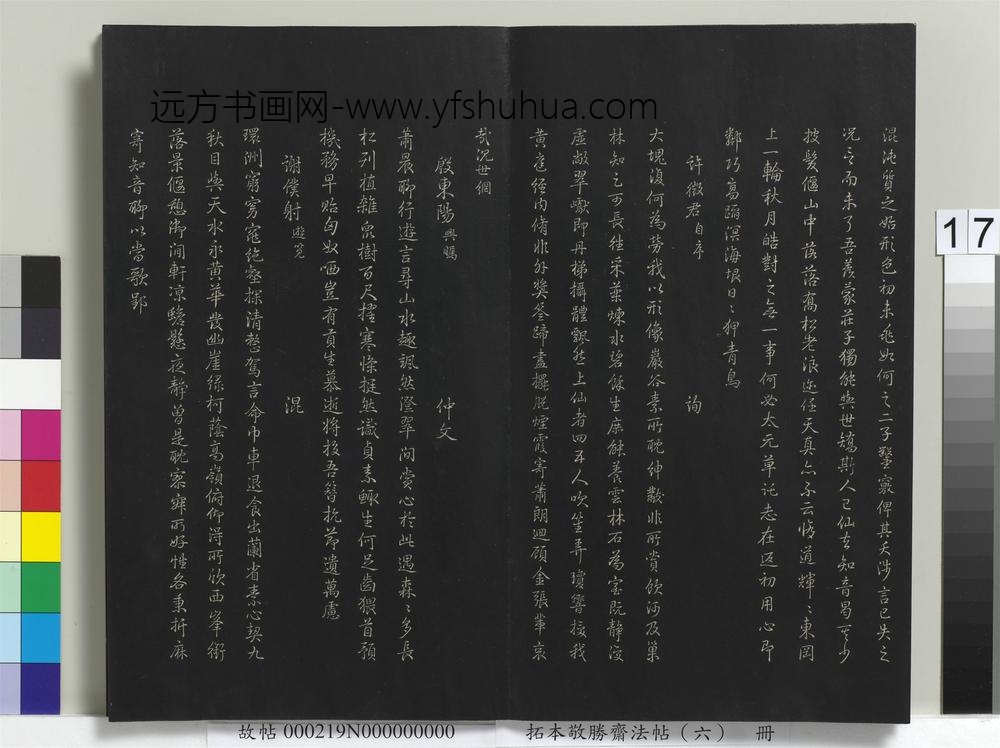 混沌質之始形色初未兆如何之二子鑿竅俾其夭涉言已失之
況言而未了吾羨蒙莊子獨能與世矯斯人已仙去知音曷
披髮偃山中落落喬松老浪迹任天真亦不云悟道輝〻東岡
上一輪秋月皓對之無一事何必太元草託志在返初用心即
鄰巧高蹈溟海垠日〻狎青鳥
許徵君 自序 詢
大塊復何為勞我以形像巖谷素所耽紳黻非所賞飲河及巢
林知足可長往采藥煉水碧餘生庶能養雲林石為室既靜復
虛敞翠巘即丹梯攝體飄然上仙者四五人吹笙弄瓊響接我
黃庭經內脩非外獎筌蹄盡擺脫煙霞寄蕭朗迴顧金張輩哀
哉沉世網
殷東陽 興矚 仲文
蕭晨聊行遊言尋山水趣飄然澄翠間賞心於此遇森〻多長
松列植雜眾樹百尺挺寒條挺然識貞素鯫生何足齒猥首預
機務早貽匈奴哂豈有貢生慕逝將投吾簪抗節遺萬慮
謝僕射 遊覽 混
環洲窮窈窕絕壑探清愁駕言命巾車退食出蘭省素心契九
秋目與天水永黃華發幽崖綠柯蔭高嶺俯仰得所欣西峯銜
落景偃憩御澗軒涼蟾懸夜靜曾是耽寂寞所好性各秉折麻
寄知音聊以當歌郢
远方书画网-www.yfshuhua.com
17
故帖 000219N000000000
拓本敬勝齋法帖（六） 冊